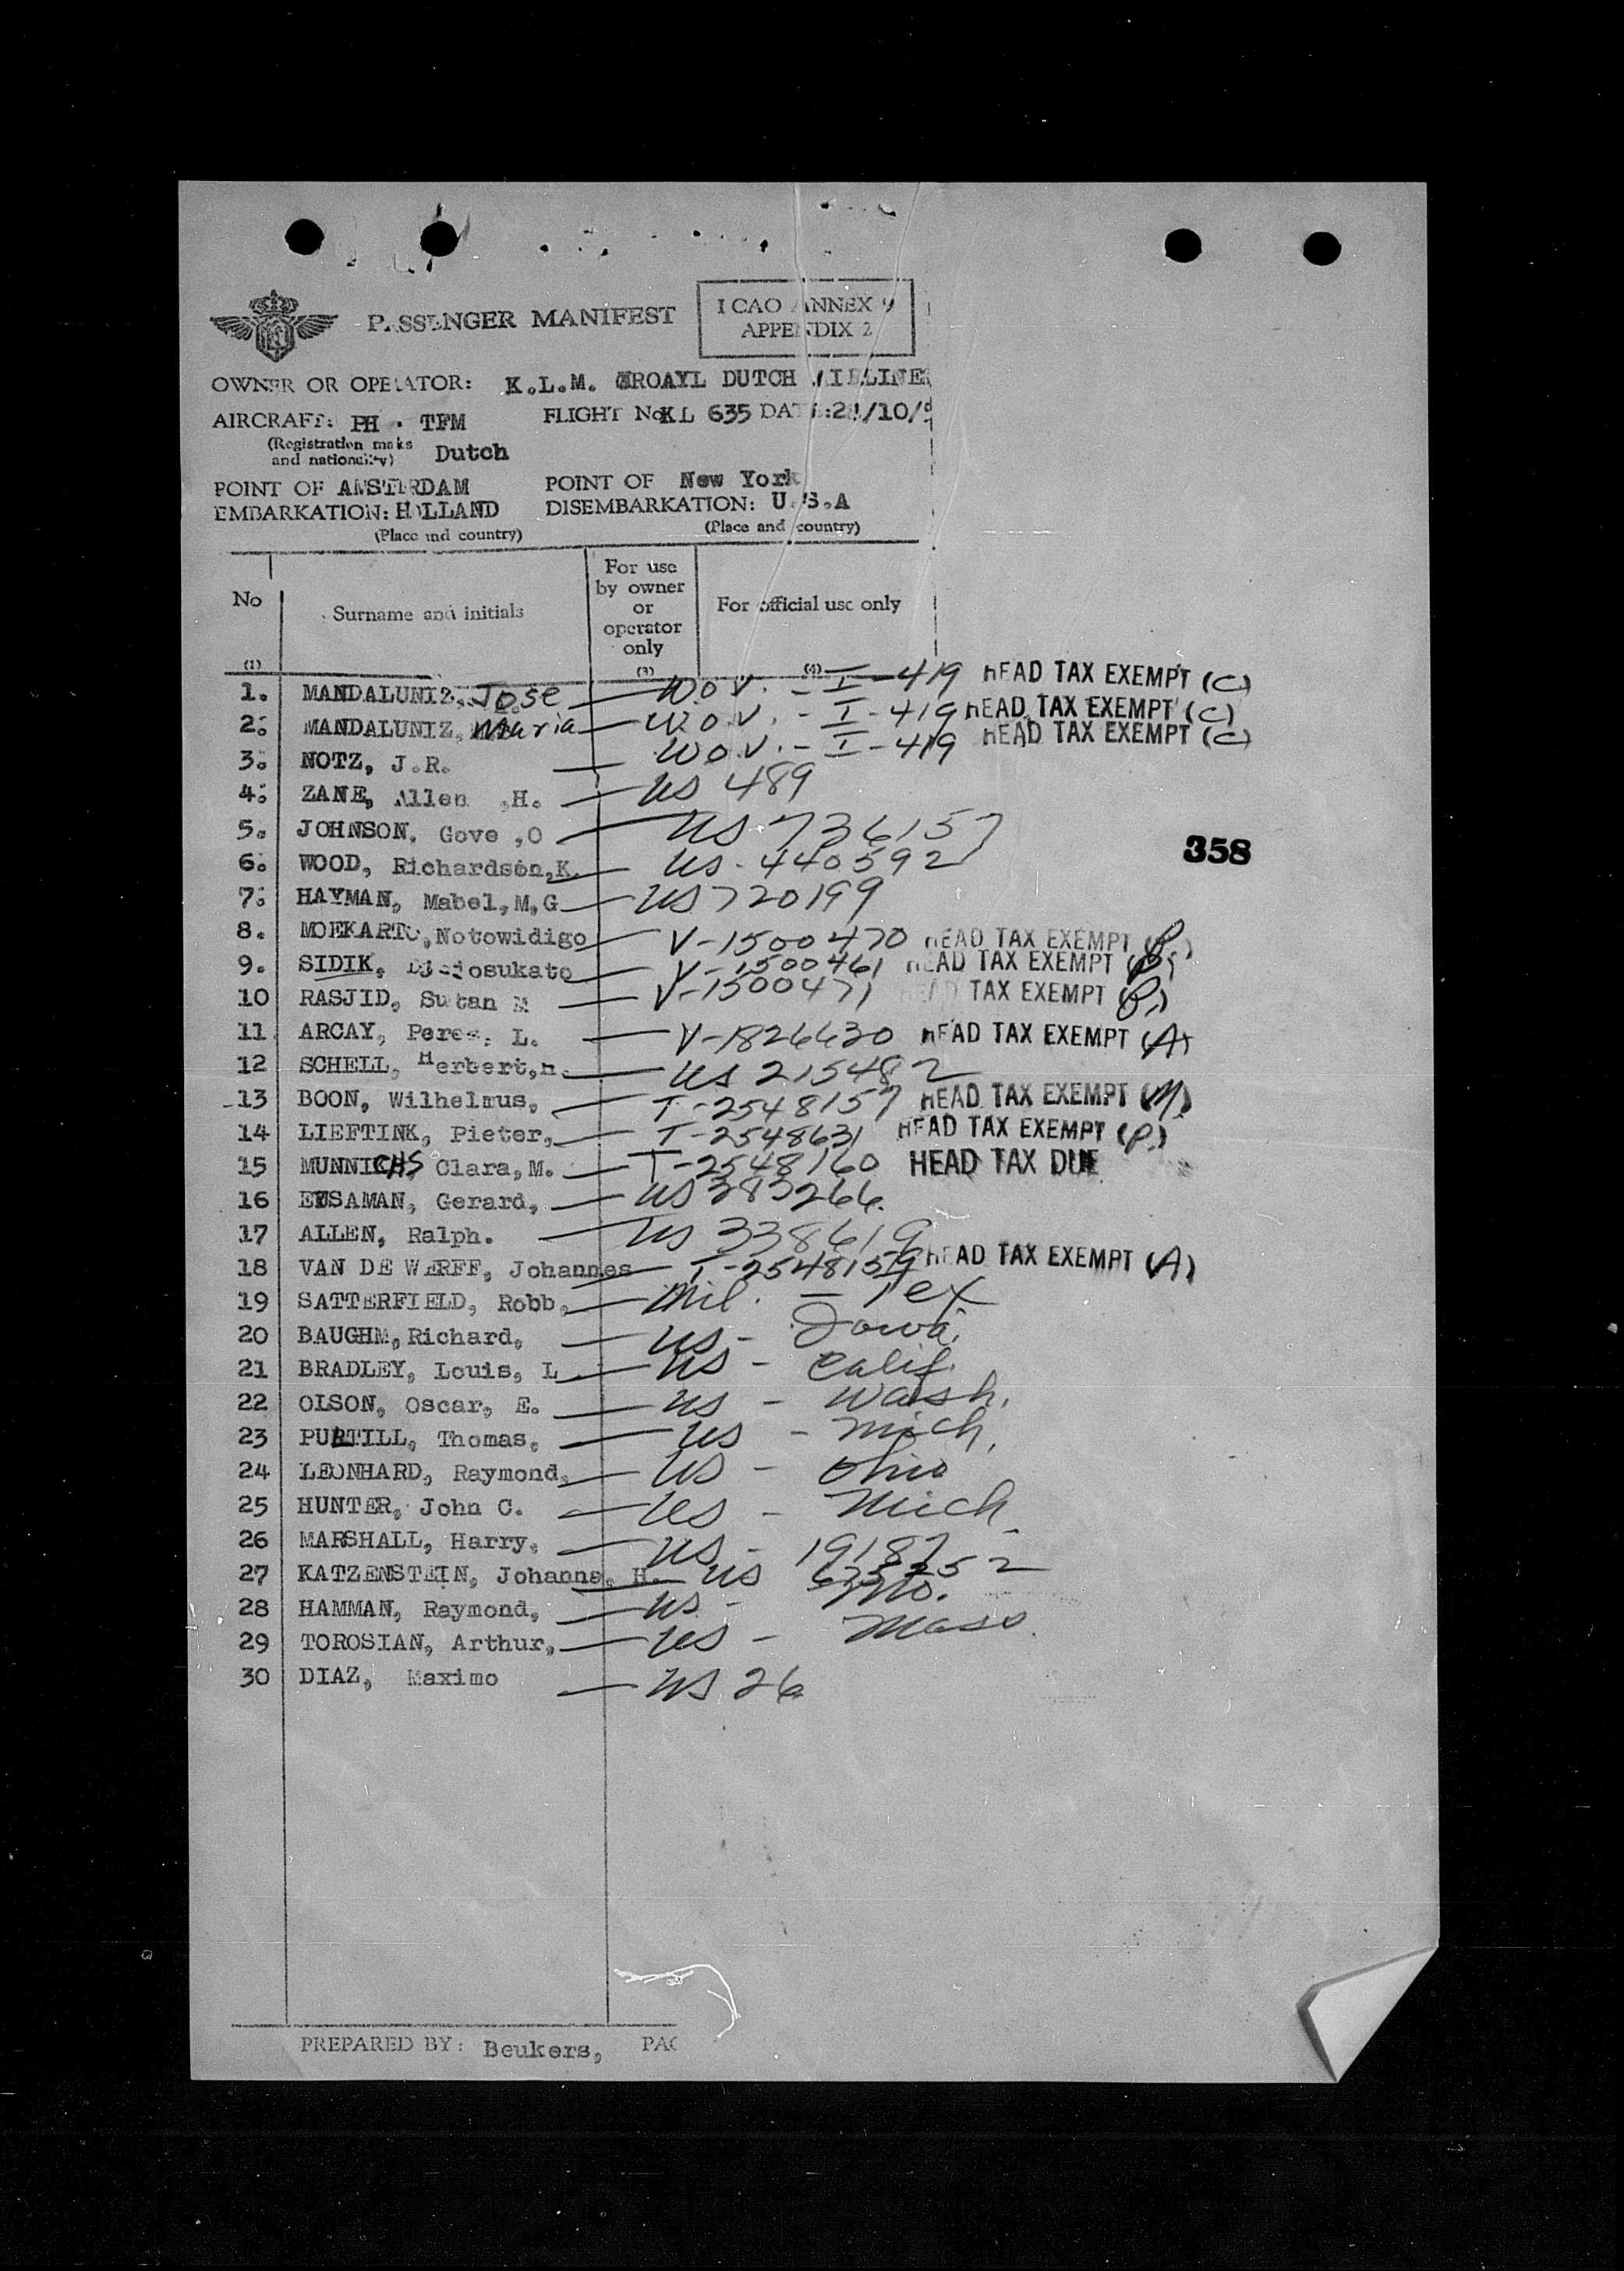 PASSENGER MANIFEST
I CAO ANNEX 9
APPENDIX 2
OWNER OR OPERATOR: K.L.M. ROAYL DUTCH AIRLINE
AIRCRAFT: PH - TFM FLIGHT No KL 635 DATE:
(Registration maks
and nationality) Dutch
POINT OF AMSTERDAM POINT OF New York
EMBARKATION: HOLLAND DISEMBARKATION: U.S.A
(Place and country) (Place and country)
No
Surname and initials
For use
by owner
or
operator
only
For official use only
(1) (3) (4)
1. MANDALUNIZ, Jose — W.O.V. - I - 419 HEAD TAX EXEMPT (C)
2. MANDALUNIZ, Maria — W.O.V. - I - 419 HEAD TAX EXEMPT (C)
3. NOTZ, J.R. — W.O.V. - I - 419 HEAD TAX EXEMPT (C)
4. ZANE, Allen ,H. — US 489
5. JOHNSON, Gove ,O — US 736157
358
6. WOOD, Richardson,K. — US - 440592
7. HAYMAN, Mabel,M,G — US 720199
8. MOEKARTO,Notowidigo — V-1500470 HEAD TAX EXEMPT (P.)
9. SIDIK, — V-1500461 HEAD TAX EXEMPT
10 RASJID, Sutan M — V-1500471 HEAD TAX EXEMPT (P.)
11 ARCAY, Perez, L. — V-1826630 HEAD TAX EXEMPT (A)
12 SCHELL, Herbert,H. — US 215482
13 BOON, Wilhelmus, — T-2548157 HEAD TAX EXEMPT (M)
14 LIEFTINK, Pieter, — T-2548631 HEAD TAX EXEMPT (P.)
15 MUNNICHS Clara,M. — T-2548160 HEAD TAX DUE
16 EYSAMAN, Gerard, — US 383266
17 ALLEN, Ralph. — US 338619
18 VAN DE WERFF, Johannes — T-2548159 HEAD TAX EXEMPT (A)
19 SATTERFIELD, Robb, — Mil. — Tex
20 BAUGHM, Richard, — US - Iowa.
21 BRADLEY, Louis, L — US - Calif.
22 OLSON, Oscar, E. — US - Wash.
23 PURTILL, Thomas, — US - Mich.
24 LEONHARD, Raymond, — US - Ohio
25 HUNTER, John C. — US - Mich.
26 MARSHALL, Harry, — US - 19187
27 KATZENSTEIN, Johanna, H. — US
28 HAMMAN, Raymond, — US - Mo.
29 TOROSIAN, Arthur, — US - Mass.
30 DIAZ, Maximo — US 26
PREPARED BY: Beukers, PAG